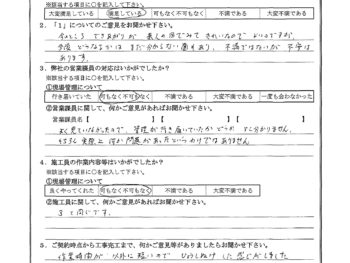 ※該当する項目に○を記入して下さい。
大変満足している 満足している 可も不可も不可でない 不満である 大変不満である
2．「1」についてのご意見をお聞かせ下さい。
今のところ できあがりが 美しいので きれいなので よいのですが、
今後 どうなるかは まだ分からない 面もあり、不満ではないが 不安は
あります。
3．弊社の営業課員の対応はいかがでしたか？
※該当する項目に○を記入して下さい。
①現場管理について
行き届いていた 何も不可も不可でなく 不満である 大変不満である 一度も会わなかった
②営業課員に関して、何かご意見があればお聞かせ下さい
営業課員名【 】【 】【 】
よく見ていなかったので、管理が行き届いていたか どうか よく分かりません。
もちろん 実際上 何か問題があったというわけではありません。
4．施工員の作業内容等はいかがでしたか？
※該当する項目に○を記入して下さい。
①現場管理について
良くやってくれた 何も不可もなく 不満である 大変不満である
②施工員に関して、何かご意見があればお聞かせ下さい
3と同じです。
5．ご契約時点から工事完工まで、何かご意見等がありましたらお聞かせ下さい。
作業時間が 以外に 短いので ひょうしぬけ した 感じがしました